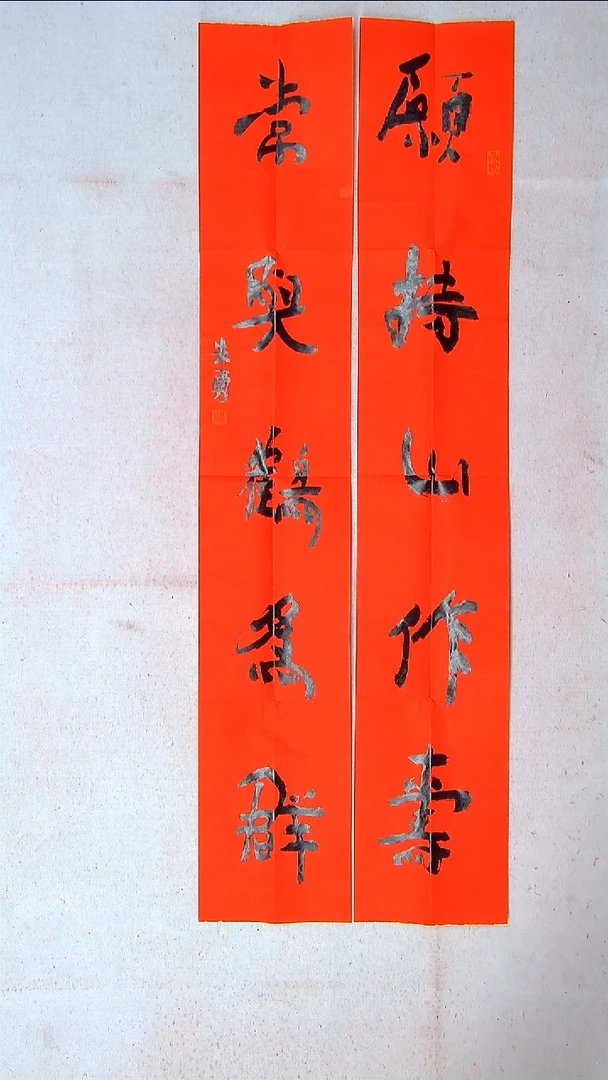 願持山作壽
常與鶴為群
朱勇